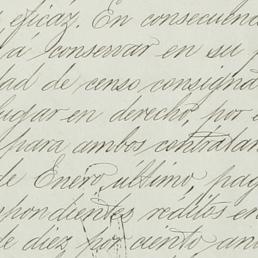 y eficaz. En consecuenc
á conservar en su p
dad de censo consigna
lugar en derecho, por e
para ambos contratan
de Enero último, pag
spondientes réditos en
de diez por ciento anu